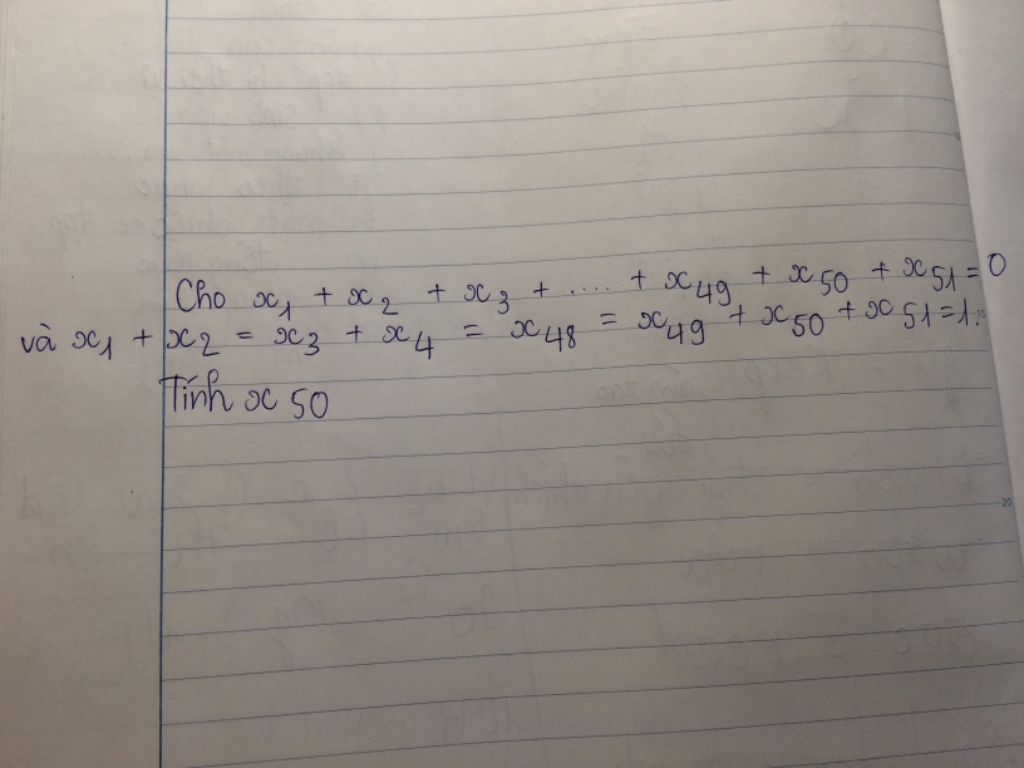 Cho x₁ + x₂ + x₃ + .... + x₄₉ + x₅₀ + x₅₁ = 0
và x₁ + x₂ = x₃ + x₄ = x₄₈ = x₄₉ + x₅₀ + x₅₁ = 1.
Tính x 50